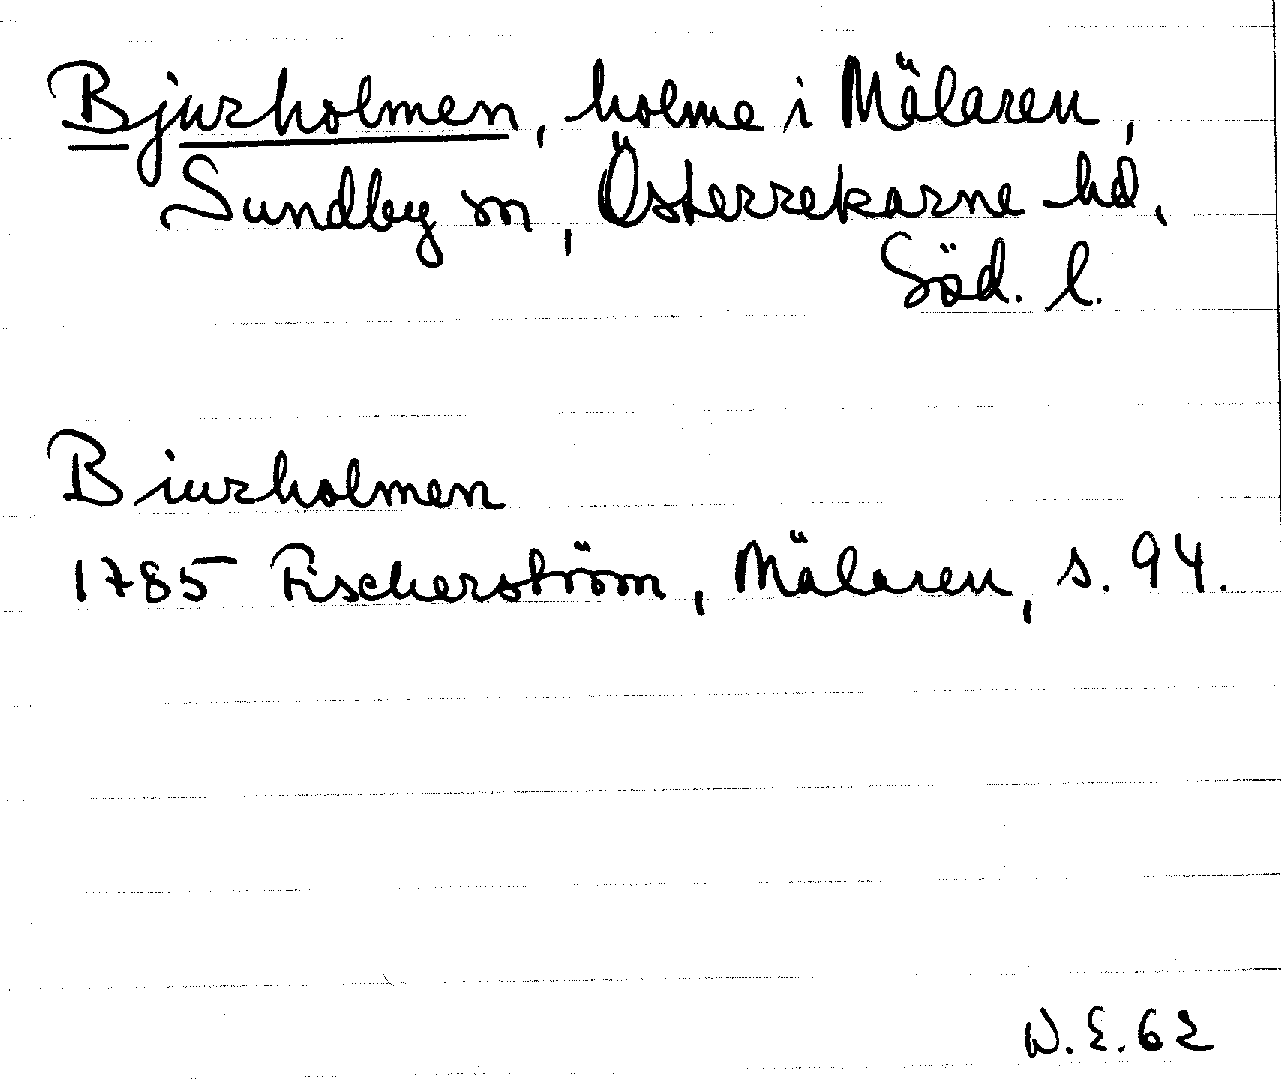 Bjurholmen, holme i Mälaren,
Sundby sn, Österrekarne hd,
Söd. l.
Biurholmen
1785 Fischerström, Mälaren, s. 94.
W. E. 62